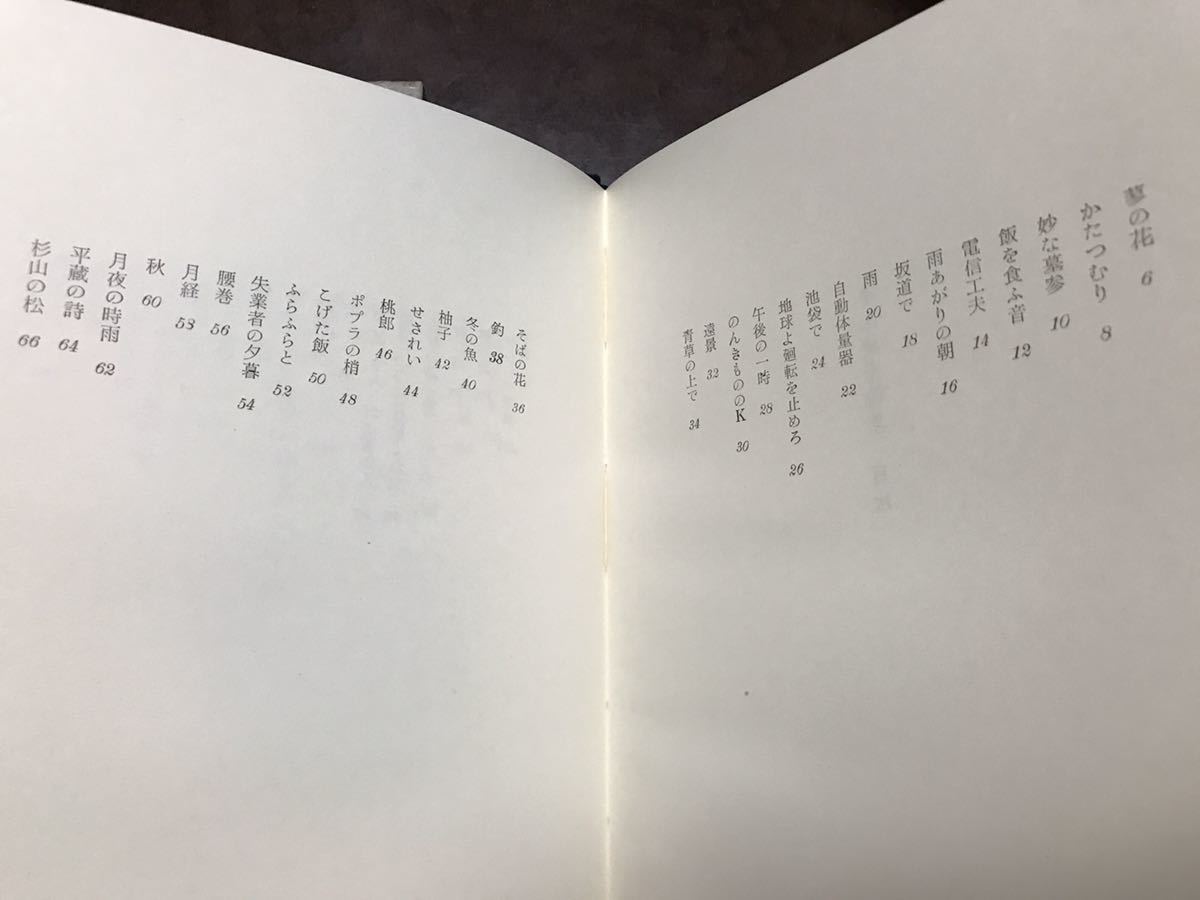 の花 6
かたつむり 8
妙な墓参 10
飯を食ふ音 12
電信工夫 14
雨あがりの朝 16
坂道で 18
雨 20
自動体量器 22
池袋で 24
地球よ廻転を止めろ 26
午後の一時 28
のんきもののK 30
遠景 32
青草の上で 34
そばの花 36
釣 38
冬の魚 40
柚子 42
せきれい 44
桃郎 46
ポプラの梢 48
こげた飯 50
ふらふらと 52
失業者の夕暮 54
腰巻 56
月経 58
秋 60
月夜の時雨 62
平蔵の詩 64
杉山の松 66